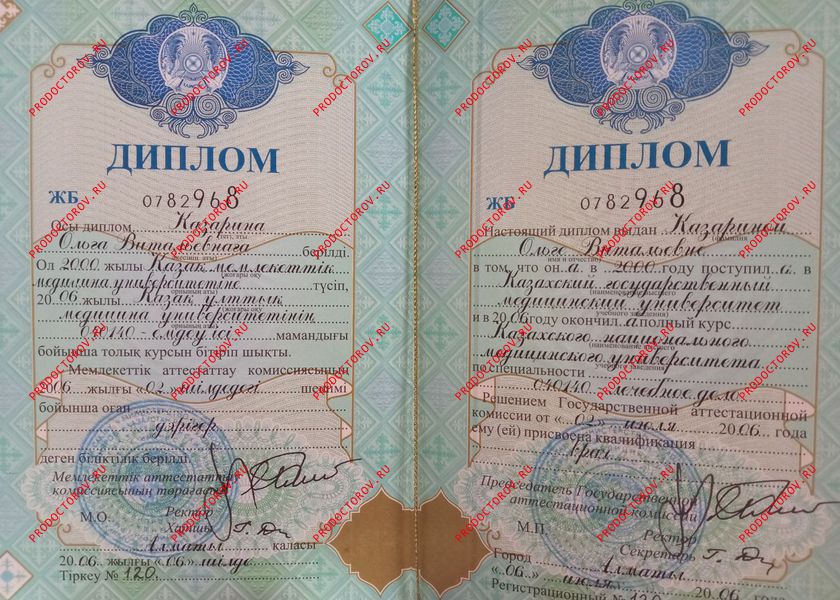 ДИПЛОМ
ЖБ 0782968
Осы диплом Казарина
Ольга Витальевнаға берілді.
Ол 2000 жылы Казақ мемлекеттік
медицина университетіне түсіп,
20 06 жылы Казақ ұлттық
медицина университетінің
040140 - емдеу ісі мамандығы
бойынша толық курсын бітіріп шықты.
Мемлекеттік аттестаттау комиссиясының
2006 жылғы «02» шілдедегі шешімі
бойынша оған
дәрігер
деген біліктілік берілді.
Мемлекеттік аттестаттау
комиссиясының төрағасы
Ректор
М.О. Хатшы
Алматы қаласы
20.06. жылғы «06» шілде
Тіркеу № 120
ДИПЛОМ
ЖБ 0782968
Настоящий диплом выдан Казариной
фамилия
Ольге Витальевне
имя и отчество
в том, что он а в 2000 году поступил а в
Казахский государственный
медицинский университет
и в 20 06 году окончил а полный курс
Казахского национального
медицинского университета
по специальности
040140 - лечебное дело
Решением Государственной аттестационной
комиссии от «02» июля 20 06 года
ему (ей) присвоена квалификация
врач
Председатель Государственной
аттестационной комиссии
Ректор
М.П. Секретарь
Город Алматы
«06» июля 20 06 года
Регистрационный № 120
PRODOCTOROV.RU